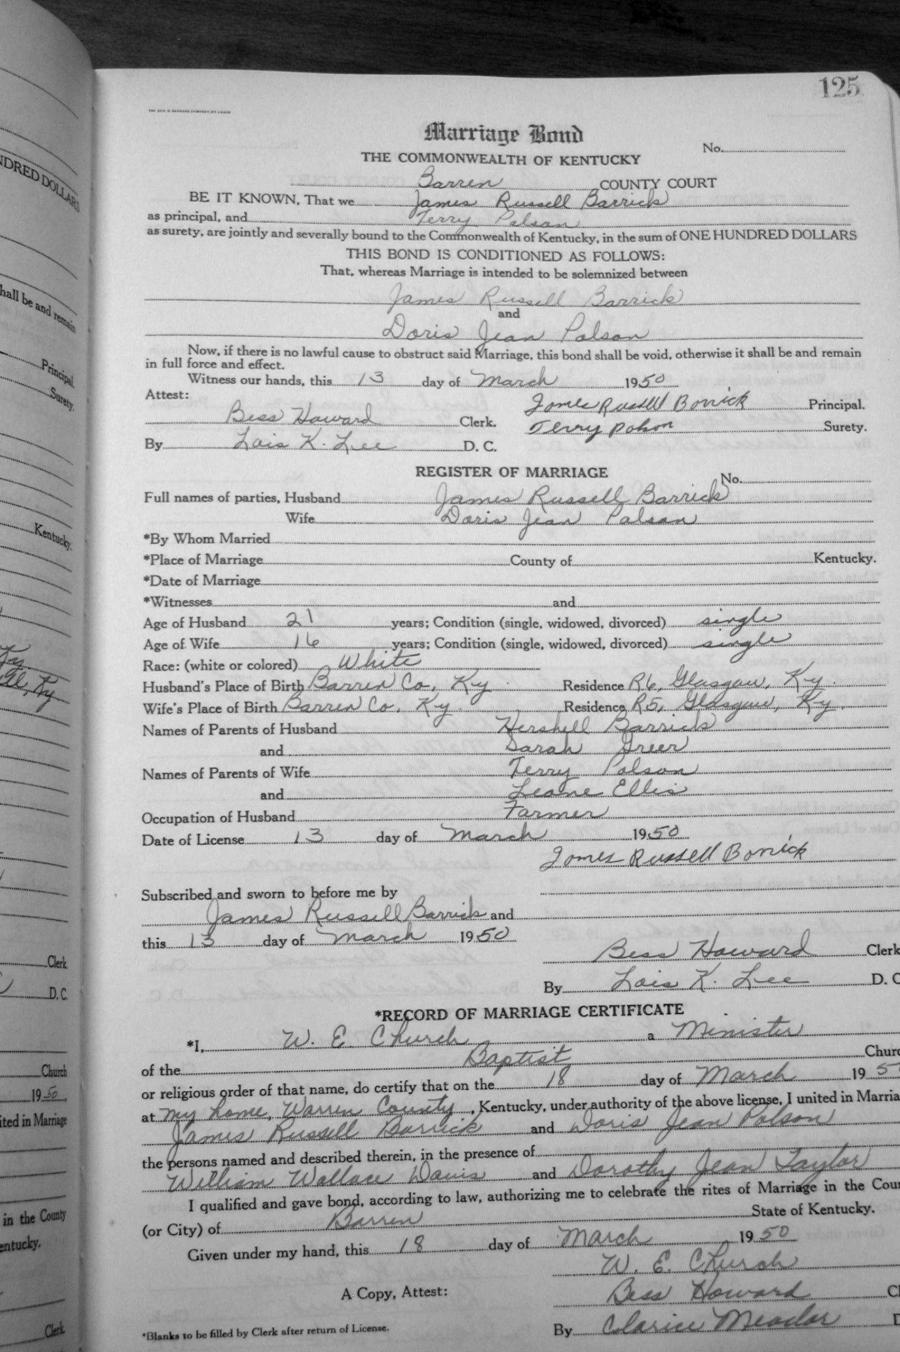 125
Marriage Bond
THE COMMONWEALTH OF KENTUCKY
No.
Barren COUNTY COURT
BE IT KNOWN, That we James Russell Barrick
as principal, and Terry Polson
as surety, are jointly and severally bound to the Commonwealth of Kentucky, in the sum of ONE HUNDRED DOLLARS
THIS BOND IS CONDITIONED AS FOLLOWS:
That, whereas Marriage is intended to be solemnized between
James Russell Barrick
and
Doris Jean Polson
Now, if there is no lawful cause to obstruct said Marriage, this bond shall be void, otherwise it shall be and remain
in full force and effect.
Witness our hands, this 13 day of March 1950
Attest:
James Russell Barrick Principal.
Bess Howard Clerk.
Terry Polson Surety.
By Lois K. Lee D. C.
REGISTER OF MARRIAGE
No.
Full names of parties, Husband James Russell Barrick
Wife Doris Jean Polson
*By Whom Married
*Place of Marriage County of Kentucky.
*Date of Marriage
*Witnesses and
Age of Husband 21 years; Condition (single, widowed, divorced) single
Age of Wife 16 years; Condition (single, widowed, divorced) single
Race: (white or colored) White
Husband's Place of Birth Barren Co, Ky. Residence R6, Glasgow, Ky.
Wife's Place of Birth Barren Co, Ky. Residence R5, Glasgow, Ky.
Names of Parents of Husband Hershell Barrick
and Sarah Greer
Names of Parents of Wife Terry Polson
and Leone Ellis
Occupation of Husband Farmer
Date of License 13 day of March 1950
James Russell Barrick
Subscribed and sworn to before me by
James Russell Barrick and
this 13 day of March 1950
Bess Howard Clerk
By Lois K. Lee D. C
*RECORD OF MARRIAGE CERTIFICATE
*I, W. E Church a Minister
of the Baptist Churc
or religious order of that name, do certify that on the 18 day of March 1950
at my home, Warren County, Kentucky, under authority of the above license, I united in Marria
James Russell Barrick and Doris Jean Polson
the persons named and described therein, in the presence of
William Wallace Davis and Dorothy Jean Taylor
I qualified and gave bond, according to law, authorizing me to celebrate the rites of Marriage in the Cou
(or City) of Barren State of Kentucky.
Given under my hand, this 18 day of March 1950
W. E. Church
A Copy, Attest: Bess Howard Cl
*Blanks to be filled by Clerk after return of License.
By Clarice Meador D
NDRED DOLLARS
hall be and remain
Principal.
Surety.
Kentucky.
Ky
Clerk
D. C.
Church
1950
ited in Marriage
in the County
entucky.
Clerk